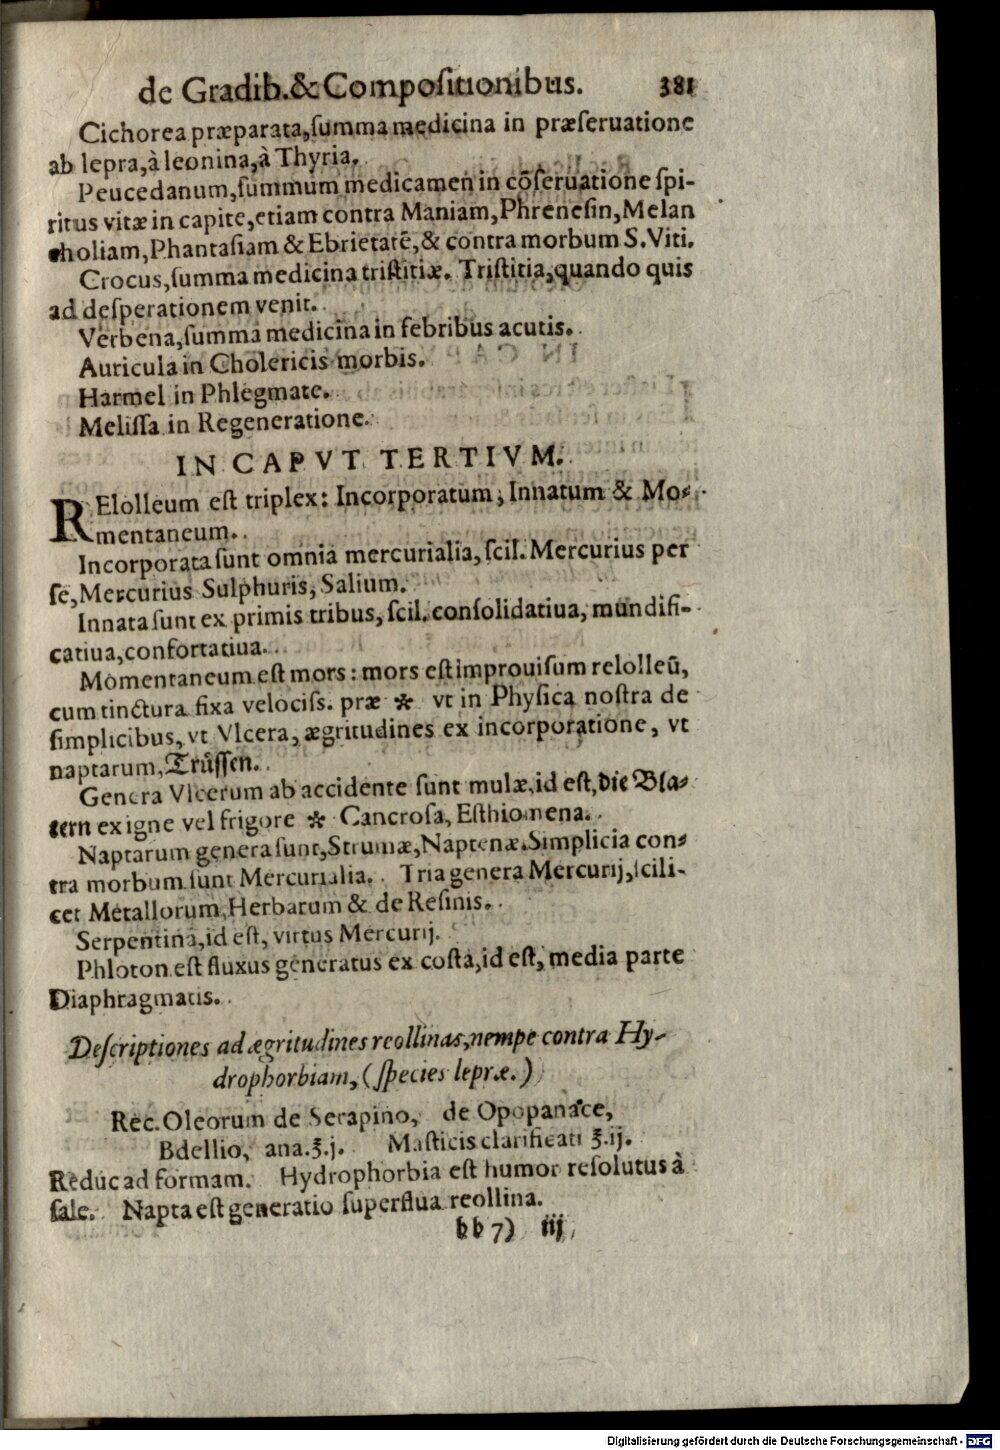 de Gradib.&Compoſitionibus. 381
Cichorea præparata,ſumma medicina in præſeruatione
ab lepra,à leonina,à Thyria.
Peucedanum,ſummum medicamen in cõſeruatione ſpi-
ritus vitæ in capite,etiam contra Maniam,Phreneſin,Melan
choliam,Phantaſiam & Ebrietatẽ,& contra morbum S.Viti.
Crocus,ſumma medicina triſtitiæ. Triſtitia,quando quis
ad deſperationem venit.
Verbena,ſumma medicina in febribus acutis.
Auricula in Cholericis morbis.
Harmel in Phlegmate.
Meliſſa in Regeneratione.
IN CAPVT TERTIVM.
RElolleum eſt triplex: Incorporatum, Innatum & Mo-
mentaneum.
Incorporata ſunt omnia mercurialia, ſcil. Mercurius per
ſe,Mercurius Sulphuris, Salium.
Innata ſunt ex primis tribus, ſcil. conſolidatiua, mundifi-
catiua,confortatiua.
Momentaneum eſt mors: mors eſt improuiſum relolleũ,
cum tinctura fixa velociſs. præ * vt in Phyſica noſtra de
ſimplicibus, vt Vlcera, ægritudines ex incorporatione, vt
naptarum,Trůſſen.
Genera Vlcerum ab accidente ſunt mulæ,id eſt,die Bla-
tern ex igne vel frigore * Cancroſa, Eſthiomena.
Naptarum genera ſunt,Strumæ,Naptenæ.Simplicia con-
tra morbum ſunt Mercurialia. Tria genera Mercurij,ſcili-
cet Metallorum,Herbarum & de Reſinis.
Serpentina,id eſt, virtus Mercurij.
Phloton eſt fluxus generatus ex coſta,id eſt, media parte
Diaphragmatis.
Deſcriptiones ad ægritudines reollinas,nempe contra Hy-
drophorbiam, (ſpecies lepræ.)
Rec.Oleorum de Serapino, de Opopanace,
Bdellio, ana.℥.j. Maſticis clarificati ℥.ij.
Reduc ad formam. Hydrophorbia eſt humor reſolutus à
ſale. Napta eſt generatio ſuperflua reollina.
bb 7) iij
Digitalisierung gefördert durch die Deutsche Forschungsgemeinschaft - DFG